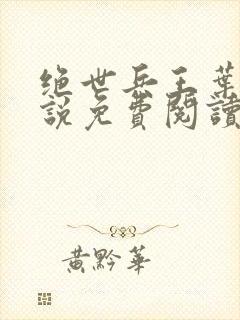 绝世兵王葉
說免費閱讀
黄黔華